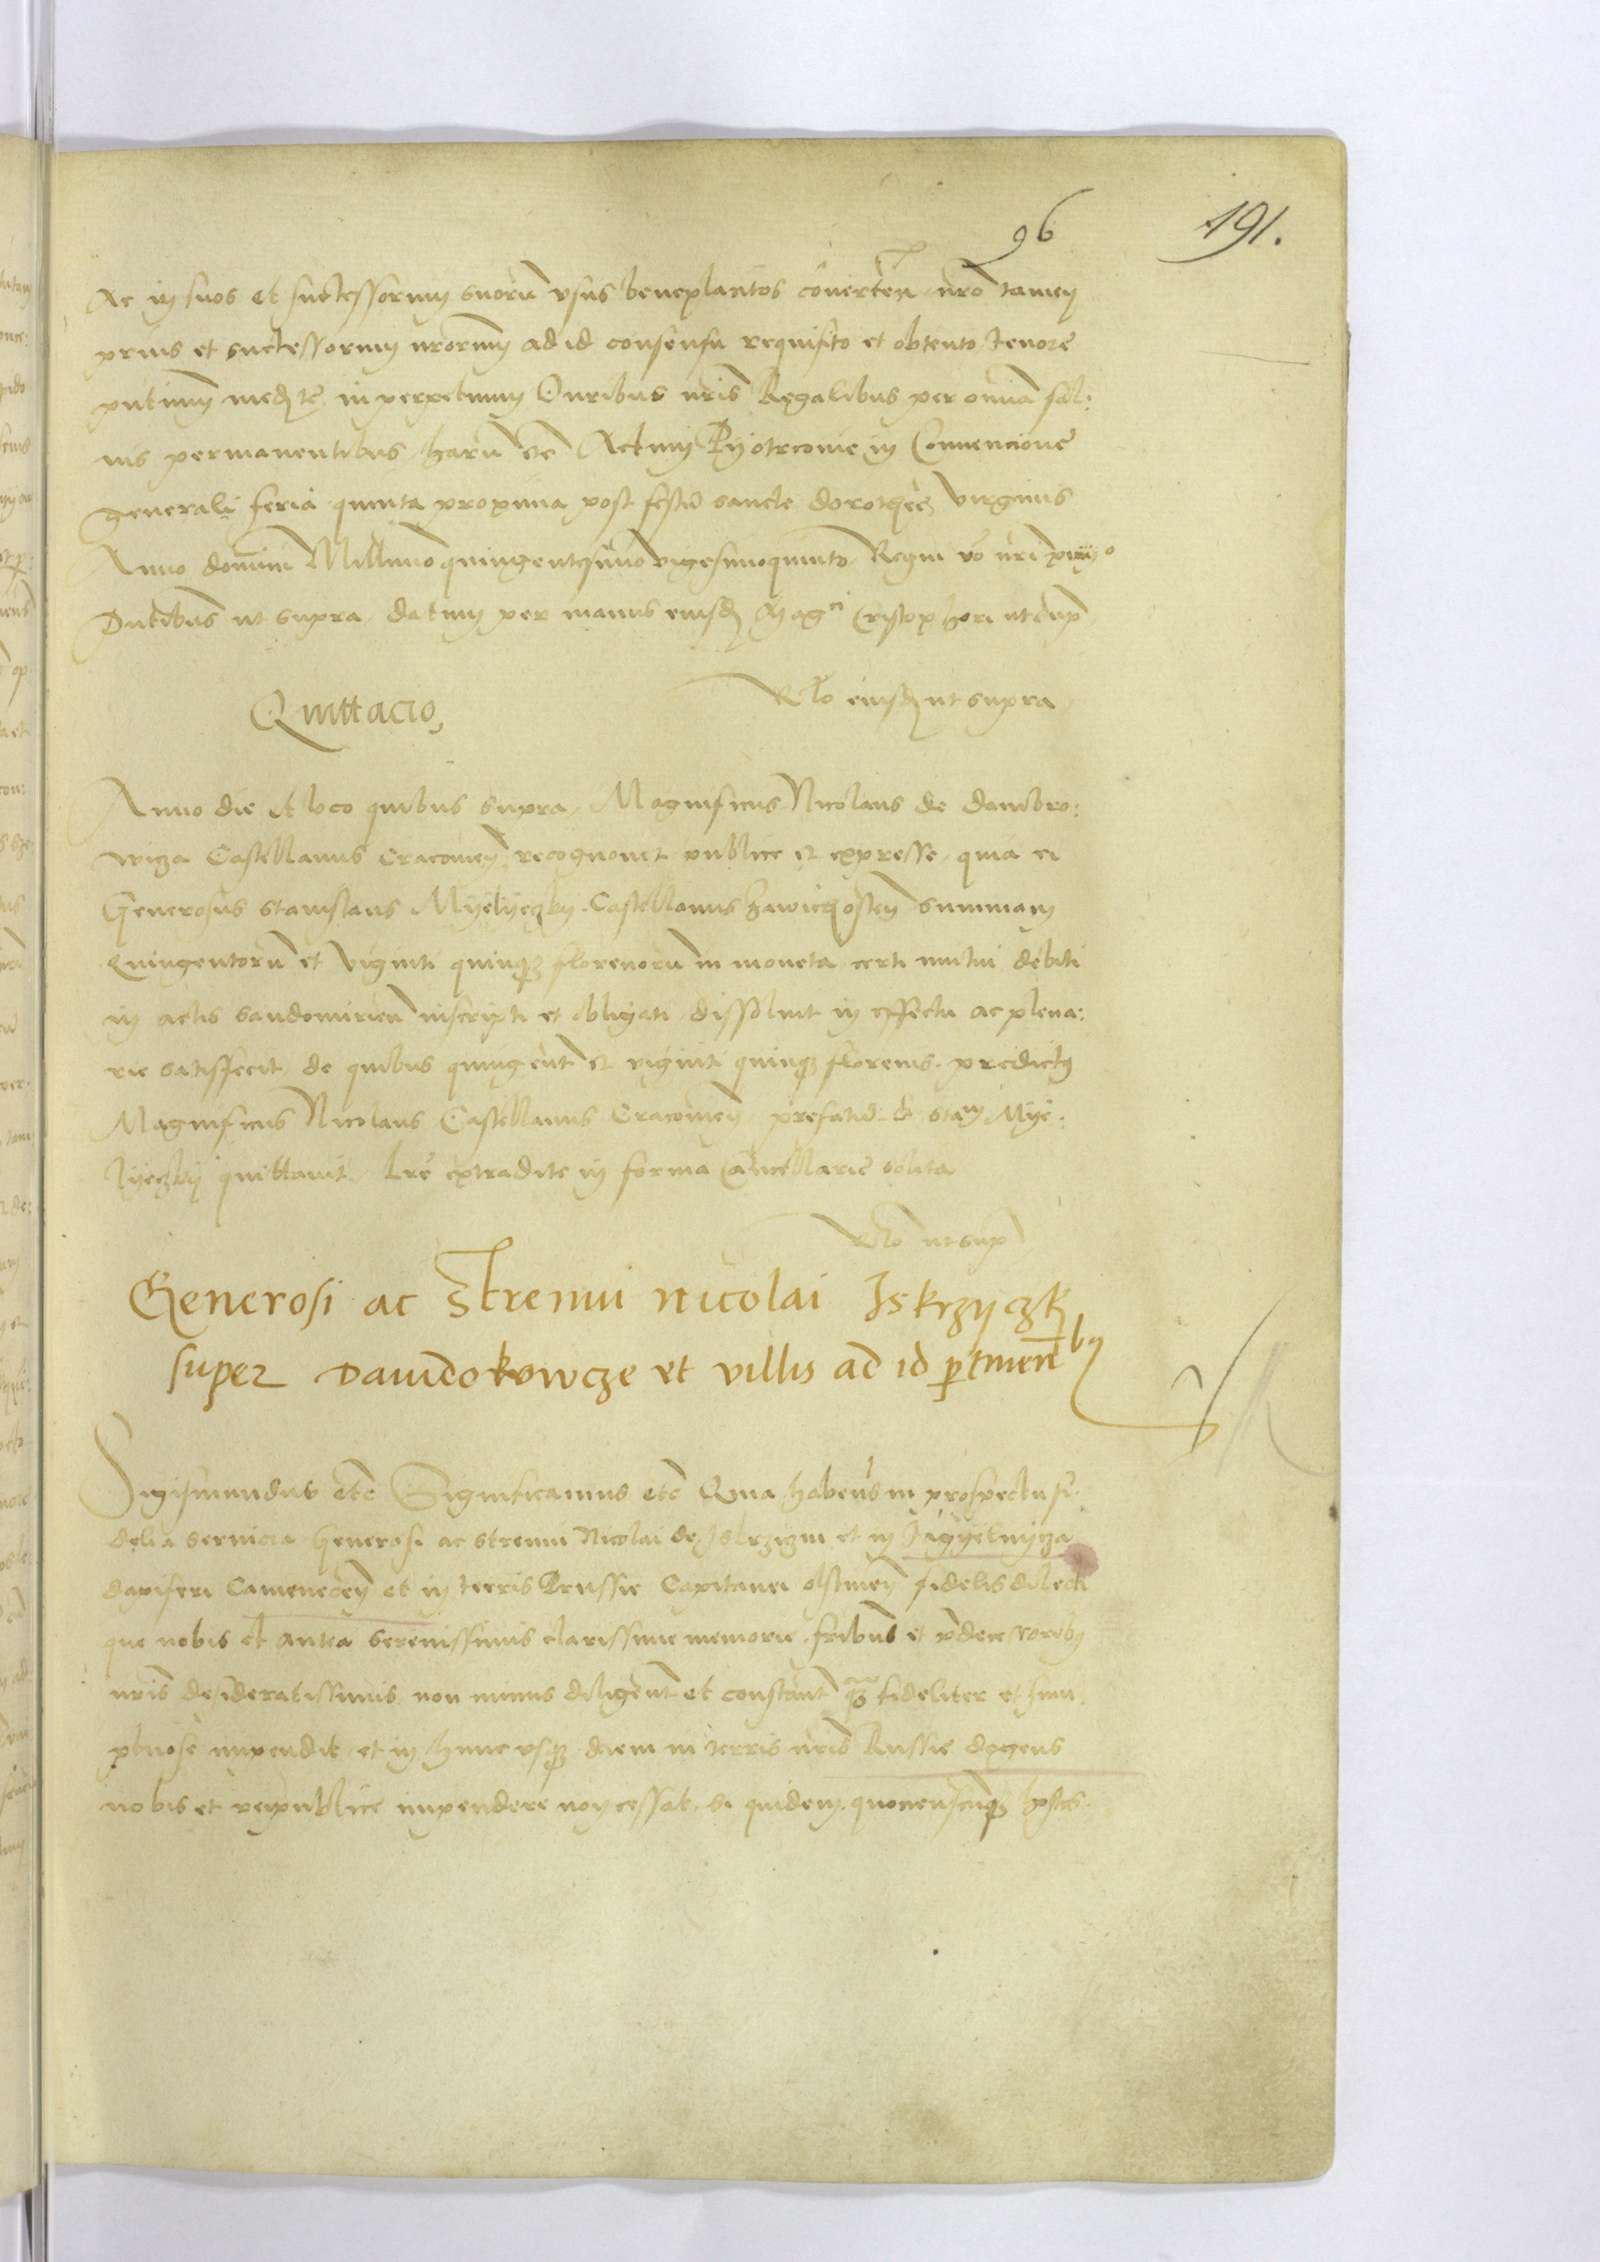 96
191.
Ac in suos et successorum suorum usus beneplacitos couerten nro tamen
prius et successorum nrorum ad id consensu requisito et obtento tenore
pntium medte in perpetuum Iuribus nris Regalibus per omnia sal:
uis permanentibus harum etc Actum Pyotrcouie in Conuencione
generali feria quinta proxima post festu sancte dorothee virginis
Anno domini Millimo quingentesimo vigesimoquinto Regni vo nri
Pntibus ut supra datum per manus eiusd Magci Cristophori ut sup
Rlo eiusd ut supra
Quittacio
Anno die et loco quibus supra Magnificus Nicolaus de dambro:
wicza Castellanus Cracouien recognouit publice et expresse quia ei
Generosus stanislaus Myelyeczky Castellanus zawichosten summam
Quingentoru et viginti quinq florenoru in moneta certi mutui debiti
in actis sandomirien inscripti et obligati dissoluit in effectu ac plena:
rie satisfecit de quibus quingent et viginti quinq florenis predictus
Magnificus Nicolaus Castellanus Cracouien prefatu d stan Mye:
lyeczky quittauit lre extradite in forma Cancellarie solita
Rlo ut sup
Generosi ac strenui nicolai Iskrzyczky
super Dauidokowcze et villis ad id ptinenbus
Sigismundus etc Significamus etc Quia habens in prospectu fi
delia seruicia Generosi ac strenui Nicolai de Iskrziczin et in Jagyelnycza
dapiferi Camenecen et in terris Prussie Capitanei olstinen fidelis dilecti
que nobis et antea serenissimis clarissime memorie fribus et pdecessoribus
nris desideratissimis non minus diligent et constant q fideliter et sum
ptuose impendit et in hunc usq diem in terris nris Russie degens
nobis et reipublice impendere non cessat si quidem quociescunq hostes